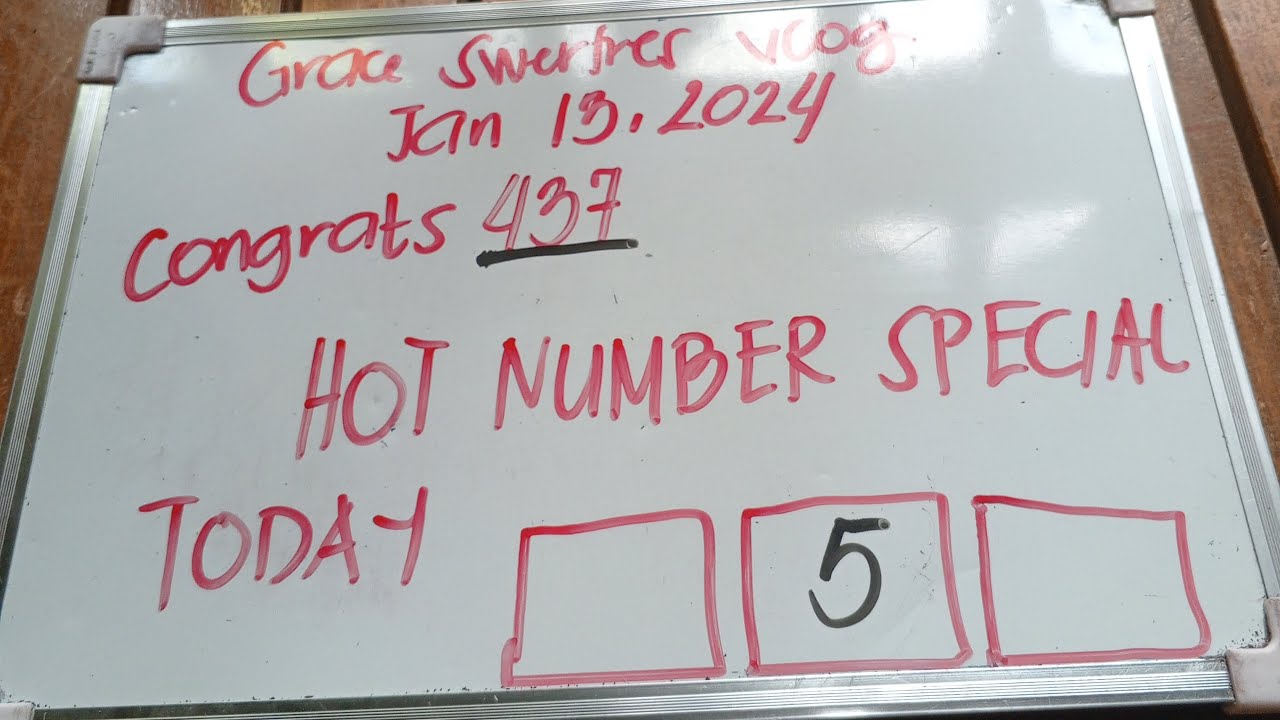 Grace Swertres vlog
Jan 13, 2024
Congrats 437
HOT NUMBER SPECIAL
TODAY 5